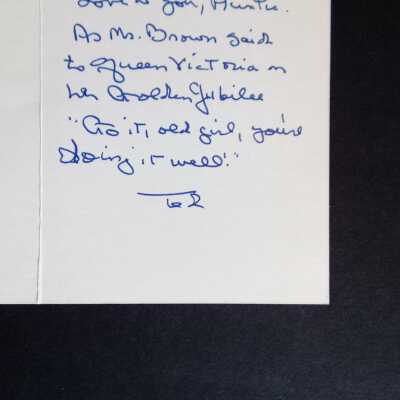 Love to you, Auntie.
As Mr. Brown said
to Queen Victoria on
her Golden Jubilee
"Go it, old girl, you're
doing it well!"